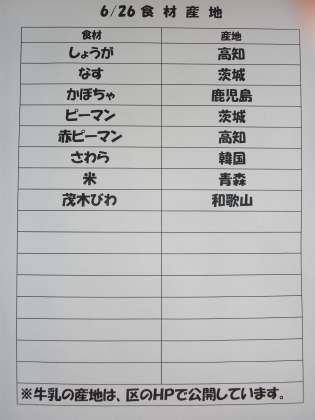 6/26 食材産地
食材 産地
しょうが 高知
なす 茨城
かぼちゃ 鹿児島
ピーマン 茨城
赤ピーマン 高知
さわら 韓国
米 青森
茂木びわ 和歌山
※牛乳の産地は、区のHPで公開しています。